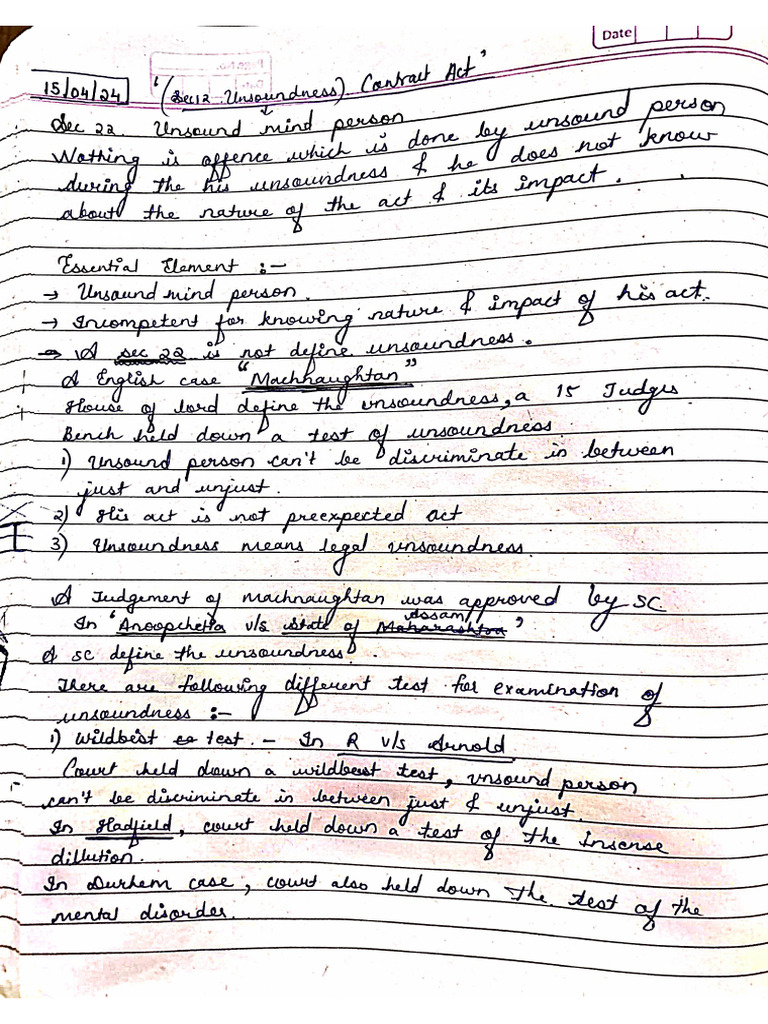 Date
15/04/24 '(Sec 12 Unsoundness) Contract Act'
Sec 22 Unsound mind person
Nothing is offence which is done by unsound person
during the his unsoundness & he does not know
about the nature of the act & its impact.
Essential Element :-
→ Unsound mind person.
→ Incompetent for knowing nature & impact of his act.
→ A sec 22 is not define unsoundness.
A English case "Machhaughtan"
House of lord define the unsoundness, a 15 Judges
Bench held down a test of unsoundness
1) Unsound person can't be discriminate in between
just and unjust.
2) His act is not preexpected act
3) Unsoundness means legal unsoundness.
A Judgement of machnaughtan was approved by SC
Assam
In 'Anoopchetia v/s State of Maharashtra'
A SC define the unsoundness.
There are following different test for examination of
unsoundness :-
1) Wildbest test. - In R v/s Arnold
Court held down a wildbest test, unsound person
can't be discriminate in between just & unjust.
In Hadfield, court held down a test of the Insense
dillution.
In Durhem case, court also held down the test of the
mental disorder.